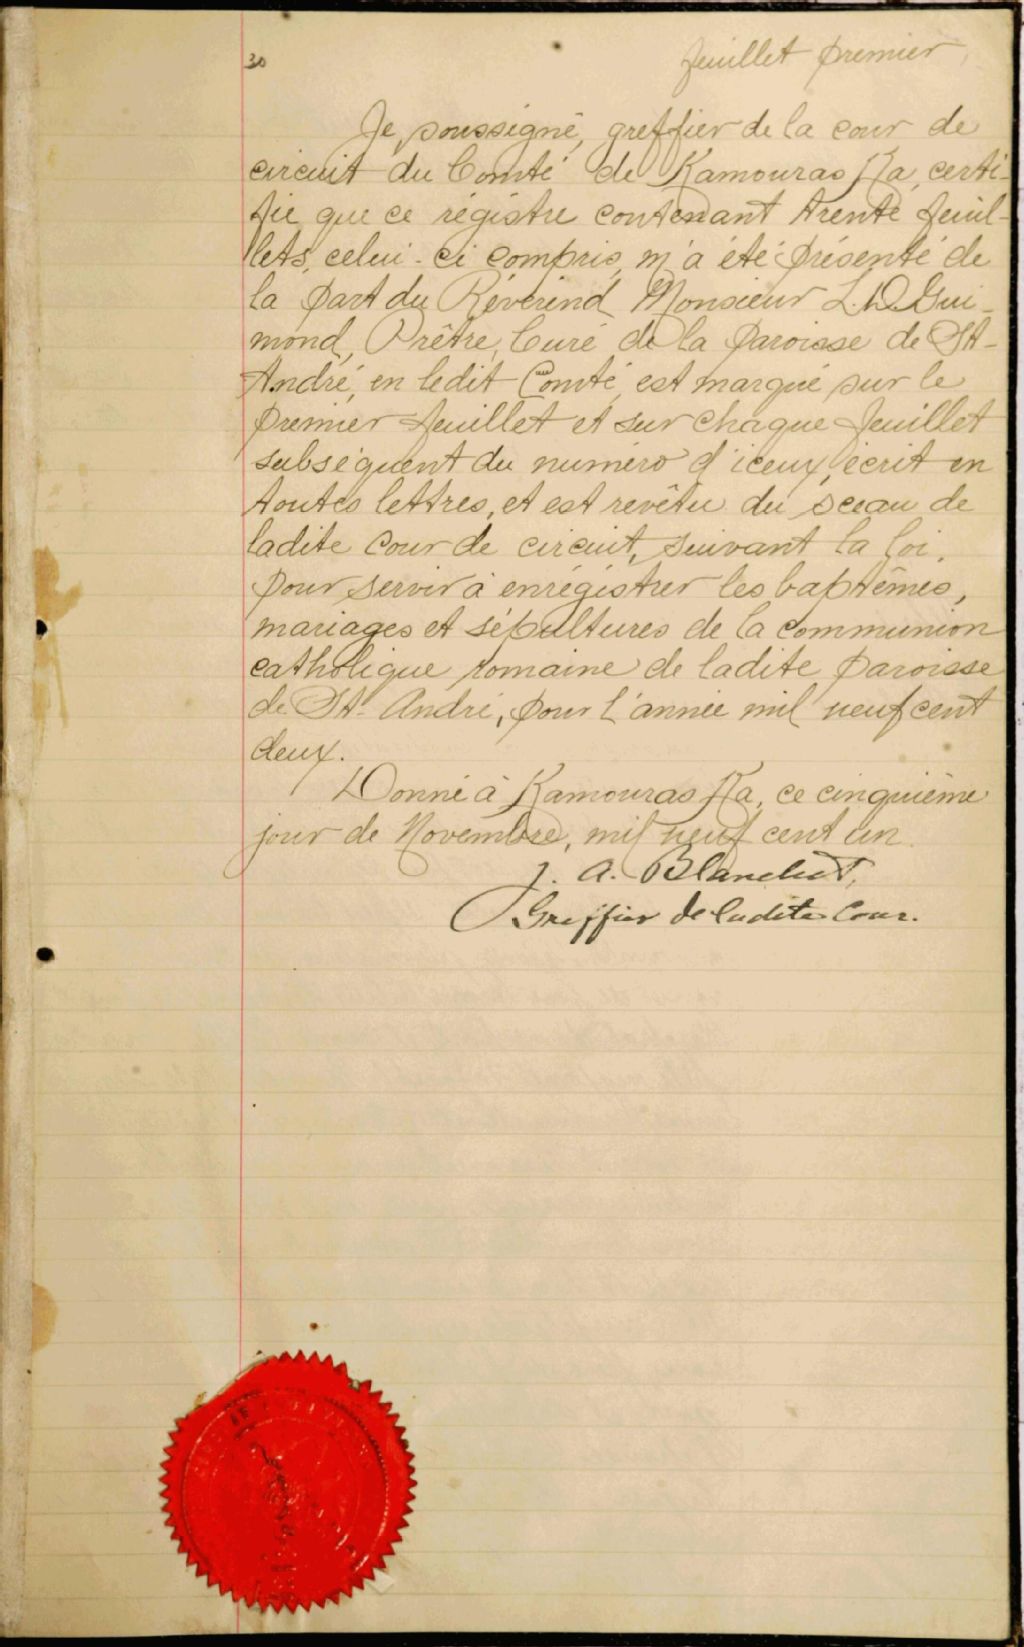 30
feuillet premier,
Je, soussigné, greffier de la cour de
circuit du Comté de Kamouraska, certi-
fie que ce régistre contenant trente feuil-
lets, celui-ci compris, m'a été présenté de
la part du Révérend Monsieur L. D. Gui-
mond, Prêtre, Curé de la paroisse de St-
André, en ledit Comté, est marqué sur le
premier feuillet et sur chaque feuillet
subséquent du numéro d'iceux, écrit en
toutes lettres, et est revêtu du sceau de
ladite cour de circuit, suivant la loi,
pour servir à enrégistrer les baptêmes,
mariages et sépultures de la communion
catholique romaine de ladite paroisse
de St-André, pour l'année mil neuf cent
deux.
Donné à Kamouraska, ce cinquième
jour de Novembre, mil neuf cent un.
J. A. Blanchet,
Greffier de ladite Cour.